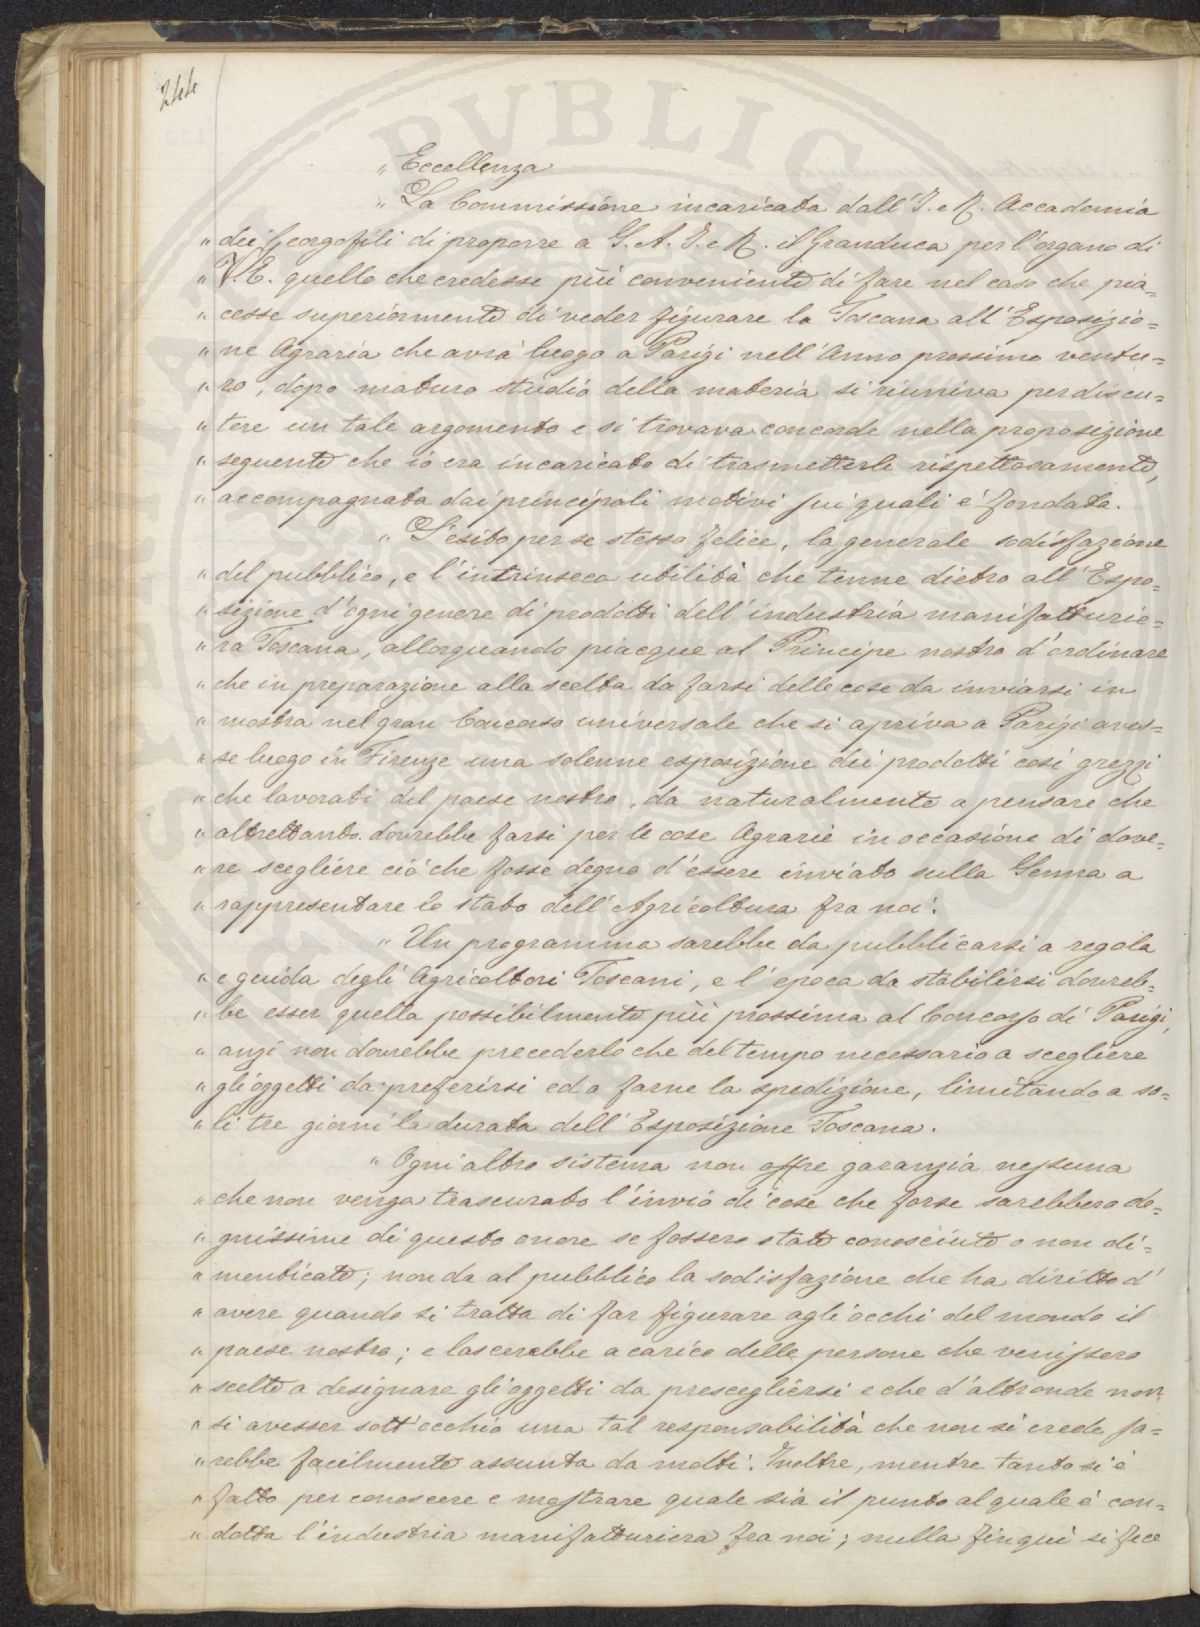 244
„ Eccellenza
„ La Commissione incaricata dall'I. e R. Accademia
„ dei Georgofili di proporre a S. A. I. e R. il Granduca per l'organo di
„ V. E. quello che credesse più conveniente di fare nel caso che pia=
„ cesse superiormente di veder figurare la Toscana all'Esposizio=
„ ne Agraria che avrà luogo a Parigi nell'Anno prossimo ventu=
„ ro, dopo maturo studio della materia si riuniva per discu=
„ tere un tale argomento e si trovava concorde nella proposizione
„ seguente che io era incaricato di trasmetterle rispettosamente,
„ accompagnata dai principali motivi sui quali è fondata.
„ L'esito per se stesso felice, la generale sodisfazione
„ del pubblico, e l'intrinseca utilità che tenne dietro all'Espo=
„ sizione d'ogni genere di prodotti dell'industria manifatturie=
„ ra Toscana, allorquando piacque al Principe nostro d'ordinare
„ che in preparazione alla scelta da farsi delle cose da inviarsi in
„ mostra nel gran Concorso universale che si apriva a Parigi aves=
„ se luogo in Firenze una solenne esposizione dei prodotti così grezzi
„ che lavorati del paese nostro, da naturalmente a pensare che
„ altrettanto dovrebbe farsi per le cose Agrarie in occasione di dove=
„ re scegliere ciò che fosse degno d'essere inviato sulla Senna a
„ rappresentare lo stato dell'Agricoltura fra noi.
„ Un programma sarebbe da pubblicarsi a regola
„ e guida degli Agricoltori Toscani, e l'epoca da stabilirsi dovreb=
„ be esser quella possibilmente più prossima al Concorso di Parigi,
„ anzi non dovrebbe precederlo che del tempo necessario a scegliere
„ gli oggetti da preferirsi ed a farne la spedizione, limitando a so=
„ li tre giorni la durata dell'Esposizione Toscana.
„ Ogni altro sistema non offre garanzia nessuna
„ che non venga trascurato l'invio di cose che forse sarebbero de=
„ gnissime di questo onore se fossero state conosciute o non di=
„ menticate; non da al pubblico la sodisfazione che ha diritto d'
„ avere quando si tratta di far figurare agli occhi del mondo il
„ paese nostro; e lascerebbe a carico delle persone che venissero
„ scelte a designare gli oggetti da prescegliersi e che d'altronde non
„ si avesser sott'occhio una tal responsabilità che non si crede sa=
„ rebbe facilmente assunta da molti. Inoltre, mentre tanto si è
„ fatto per conoscere e mostrare quale sia il punto al quale è con=
„ dotta l'industria manifatturiera fra noi; nulla finquì si fece